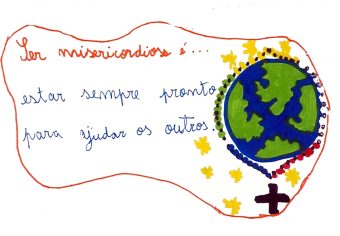 Ser misericordioso é...
estar sempre pronto
para ajudar os outros.